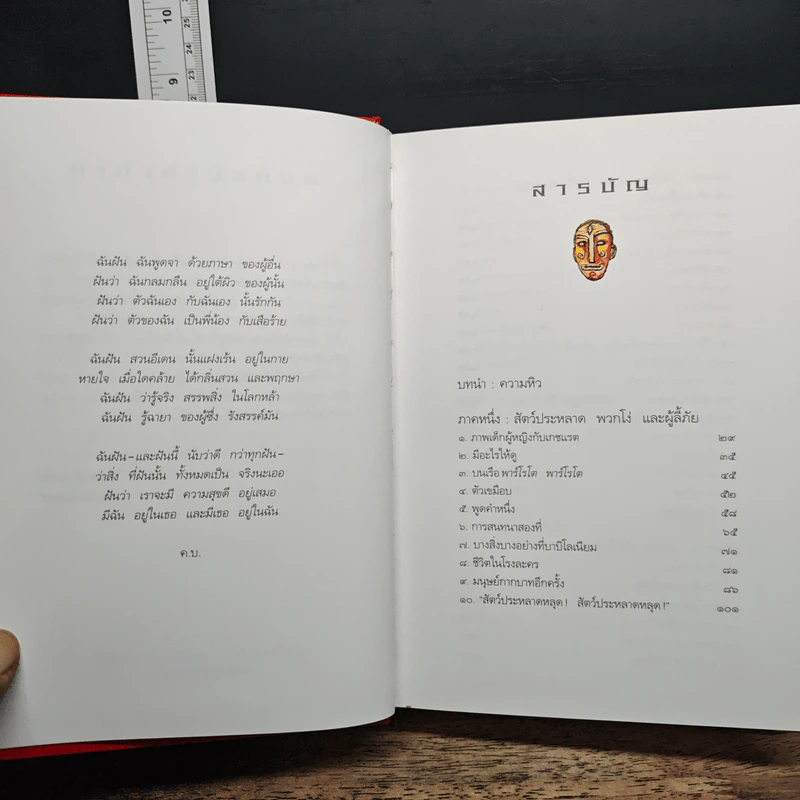 10
9
25
24
23
22
ฉันฝัน ฉันพูดจา ด้วยภาษา ของผู้อื่น
ฝันว่า ฉันกลมกลืน อยู่ใต้ผิว ของผู้นั้น
ฝันว่า ตัวฉันเอง กับฉันเอง นั้นรักกัน
ฝันว่า ตัวของฉัน เป็นพี่น้อง กับเสือร้าย
ฉันฝัน สวนอีเดน นั้นแฝงเร้น อยู่ในกาย
หายใจ เมื่อใดคล้าย ได้กลิ่นสวน และพฤกษา
ฉันฝัน ว่ารู้จริง สรรพสิ่ง ในโลกหล้า
ฉันฝัน รู้ฉายา ของผู้ซึ่ง รังสรรค์มัน
ฉันฝัน–และฝันนี้ นับว่าดี กว่าทุกฝัน–
ว่าสิ่ง ที่ฝันนั้น ทั้งหมดเป็น จริงนะเออ
ฝันว่า เราจะมี ความสุขดี อยู่เสมอ
มีฉัน อยู่ในเธอ และมีเธอ อยู่ในฉัน
ค.บ.
สารบัญ
บทนำ : ความหิว
ภาคหนึ่ง : สัตว์ประหลาด พวกโง่ และผู้ลี้ภัย
๑. ภาพเด็กผู้หญิงกับเกซแรต ๒๙
๒. มีอะไรให้ดู ๓๕
๓. บนเรือพาร์โรโต พาร์โรโต ๔๕
๔. ตัวเขมือบ ๕๒
๕. พูดคำหนึ่ง ๕๘
๖. การสนทนาสองที่ ๖๕
๗. บางสิ่งบางอย่างที่บาบิโลเนียม ๗๑
๘. ชีวิตในโรงละคร ๘๑
๙. มนุษย์กากบาทอีกครั้ง ๘๖
๑๐. "สัตว์ประหลาดหลุด! สัตว์ประหลาดหลุด!" ๑๐๑